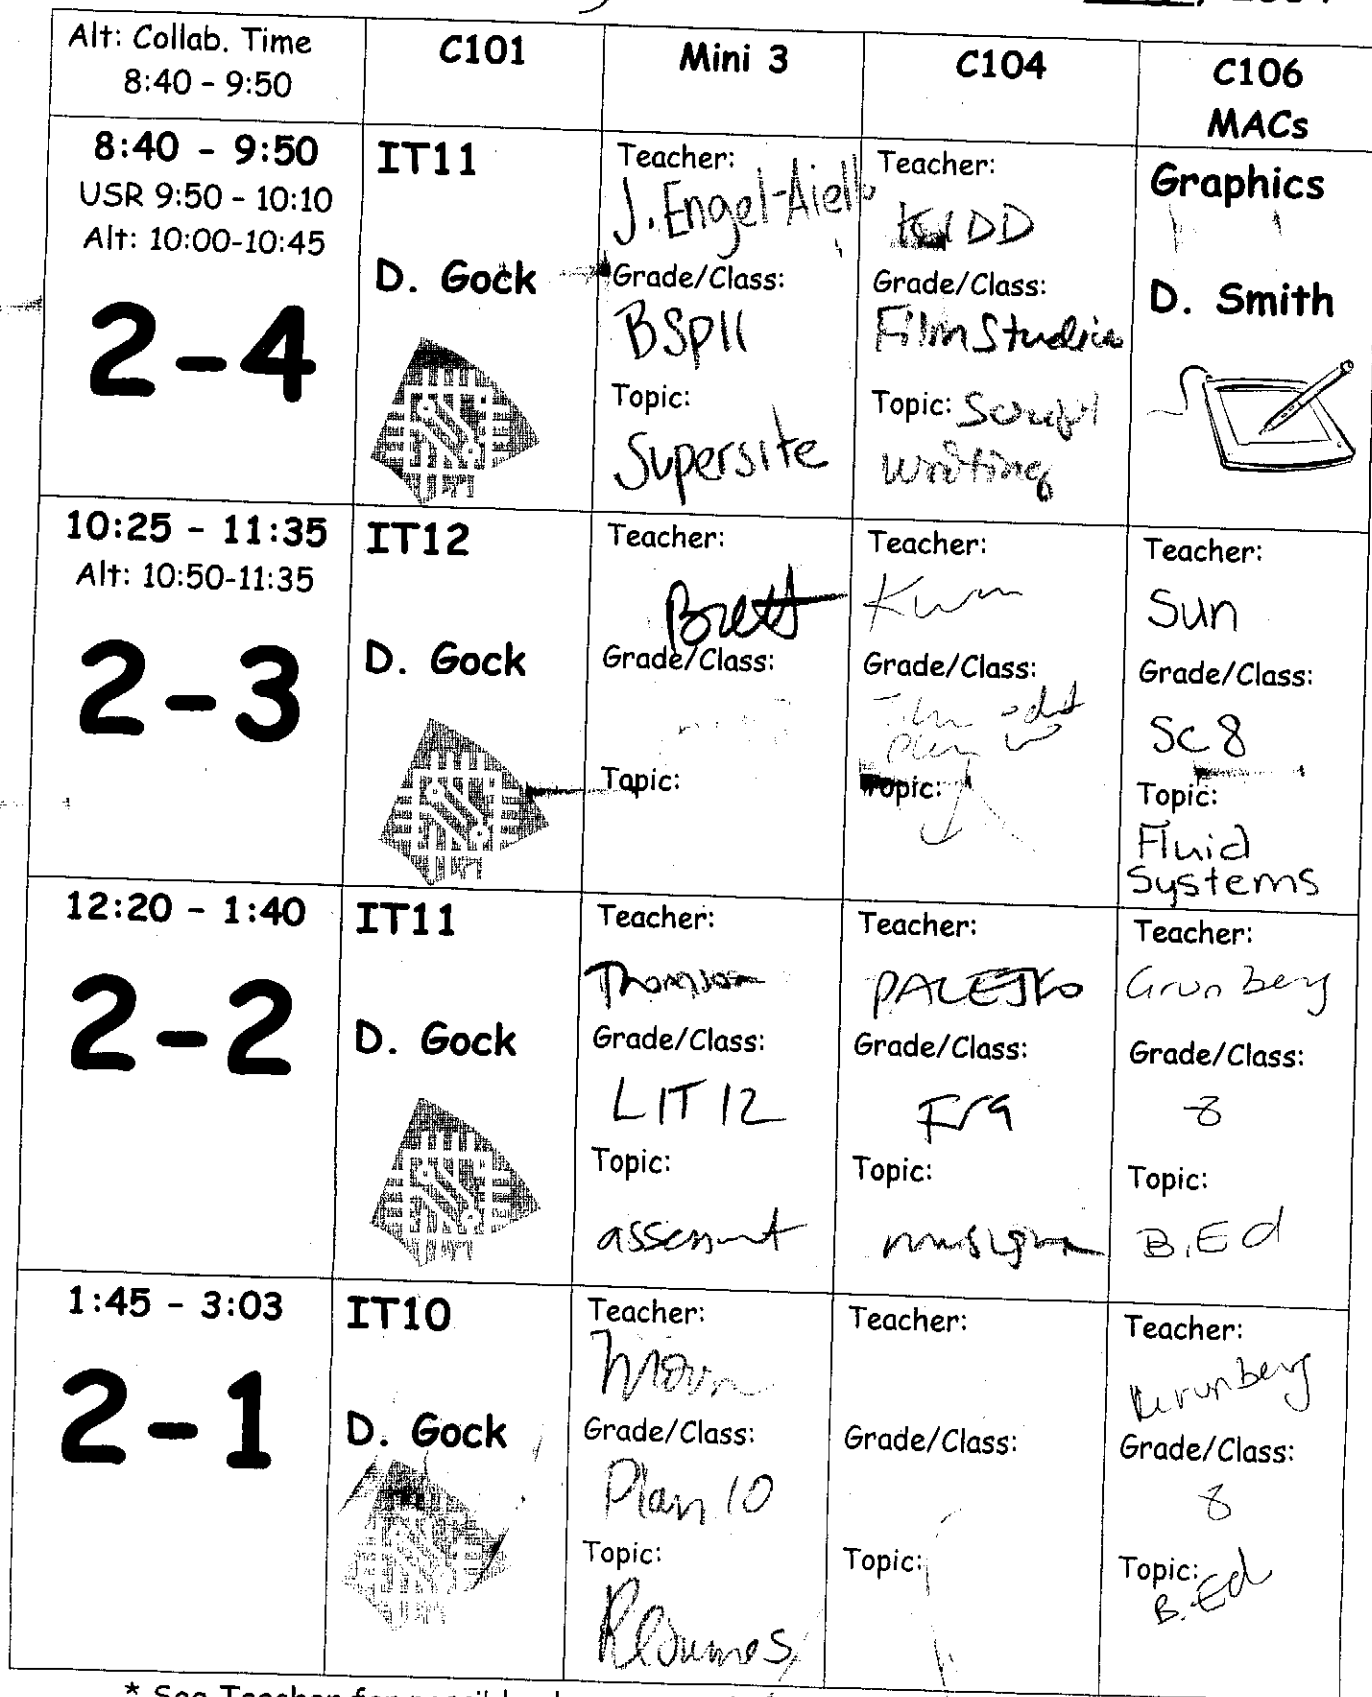 Alt: Collab. Time
8:40 - 9:50
C101
Mini 3
C104
C106
MACs
8:40 - 9:50
USR 9:50 - 10:10
Alt: 10:00-10:45
2-4
IT11
D. Gock
Teacher:
J. Engel-Aiello
Grade/Class:
BSP11
Topic:
Supersite
Teacher:
KIDD
Grade/Class:
Film Studies
Topic: Script
writing
Graphics
D. Smith
10:25 - 11:35
Alt: 10:50-11:35
2-3
IT12
D. Gock
Teacher:
Brett
Grade/Class:
Topic:
Teacher:
Grade/Class:
Topic:
Teacher:
Sun
Grade/Class:
Sc 8
Topic:
Fluid
Systems
12:20 - 1:40
2-2
IT11
D. Gock
Teacher:
Thomson
Grade/Class:
LIT 12
Topic:
Teacher:
Grade/Class:
Fr9
Topic:
Teacher:
Grunberg
Grade/Class:
8
Topic:
B.Ed
1:45 - 3:03
2-1
IT10
D. Gock
Teacher:
Grade/Class:
Plan 10
Topic:
Resumes
Teacher:
Grade/Class:
Topic:
Teacher:
Grunberg
Grade/Class:
8
Topic:
B.Ed
* See Teacher for